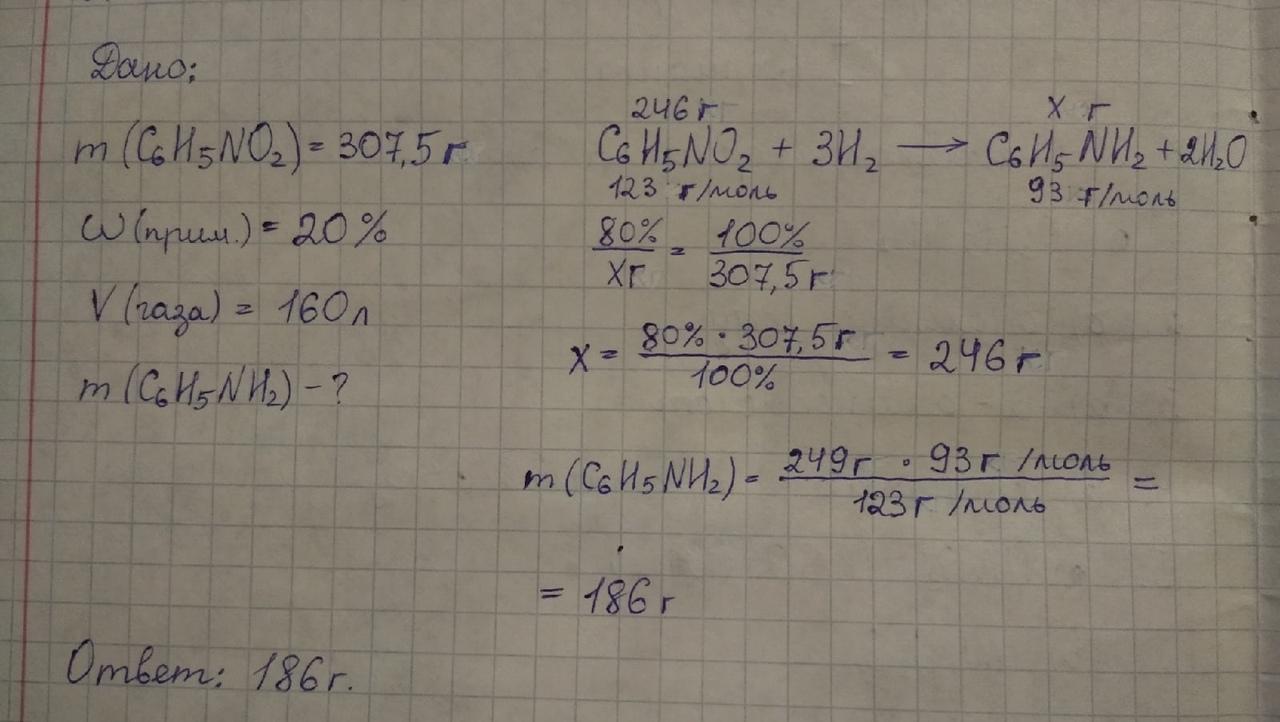 Дано:
m (C₆H₅NO₂) = 307,5 г
ω (прим.) = 20%
V (газа) = 160 л
m (C₆H₅NH₂) - ?
246 г X г
C₆H₅NO₂ + 3H₂ ⟶ C₆H₅NH₂ + 2H₂O
123 г/моль 93 г/моль
80% / Xг = 100% / 307,5 г
X = 80% · 307,5 г / 100% = 246 г
m (C₆H₅NH₂) = 249г · 93 г /моль / 123 г /моль =
= 186 г
Ответ: 186 г.